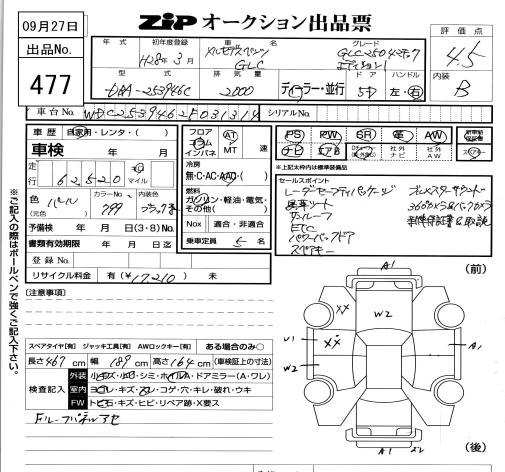 09月27日
ZIP オークション出品票
出品No.
477
年式 初年度登録 車名 グレード
H28年3月 メルセデスベンツ GLC250 4マチック
GLC エディション1
型式 排気量 ドア ハンドル
DAA-253946C 2000 ディーラー・並行 5D 左・右
評価点
4.5
内装
B
車台No. WDC2539462F031314 シリアルNo.
車歴 自家用・レンタ・( )
車検 年 月
走行 62,520 km マイル
色 (元色) パール カラーNo. 799 ブラック
予備検 年 月 日(3・8)No.
書類有効期限 年 月 日迄
登録No.
リサイクル料金 有(¥17,210) 未
フロア コラム インパネ AT MT 速
冷房
無・C・AC・AAC・( )
燃料
ガソリン・軽油・電気・その他( )
Nox 適合・非適合
乗車定員 5 名
PS PW SR 革 AW
ナビ エアB 社外ナビ 社外AW
※上記太枠内は標準装備品
セールスポイント
レーダーセーフティパッケージ
サンルーフ
ETC
パワーバックドア
スペアキー
※ご記入の際はボールペンで強くご記入下さい。
[注意事項]
スペアタイヤ[有] ジャッキ工具[有] AWロックキー[有] ある場合のみ〇
長さ467cm 幅189cm 高さ164cm (車検証上の寸法)
検査記入
外装 小キズ・小凹・シミ・ホイルA・ドアミラー(A・ワレ)
室内 ヨゴレ・キズ・スレ・コゲ・穴・キレ・破れ・ウキ
FW トビ石・キズ・ヒビ・リペア跡・X要ス
(前)
A1
XX
W2
U1
XX
W2
A1
A1
(後)